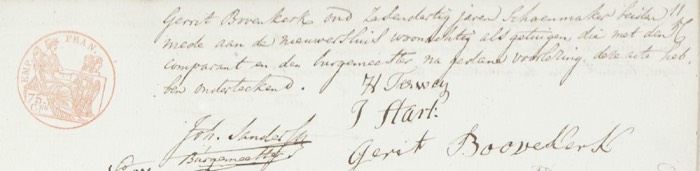 Gerrit Bovenkerk oud Zesendertig jaren Schoenmaker beiden
mede aan de nieuwersluis woonachtig als getuigen, die met den
comparant en den burgemeester na gedane voorlezing, deze acte heb
ben onderteekend.
EMP. FRAN.
J Stark
Joh. Sanders
Burgemeester
Gerit BooveKerk